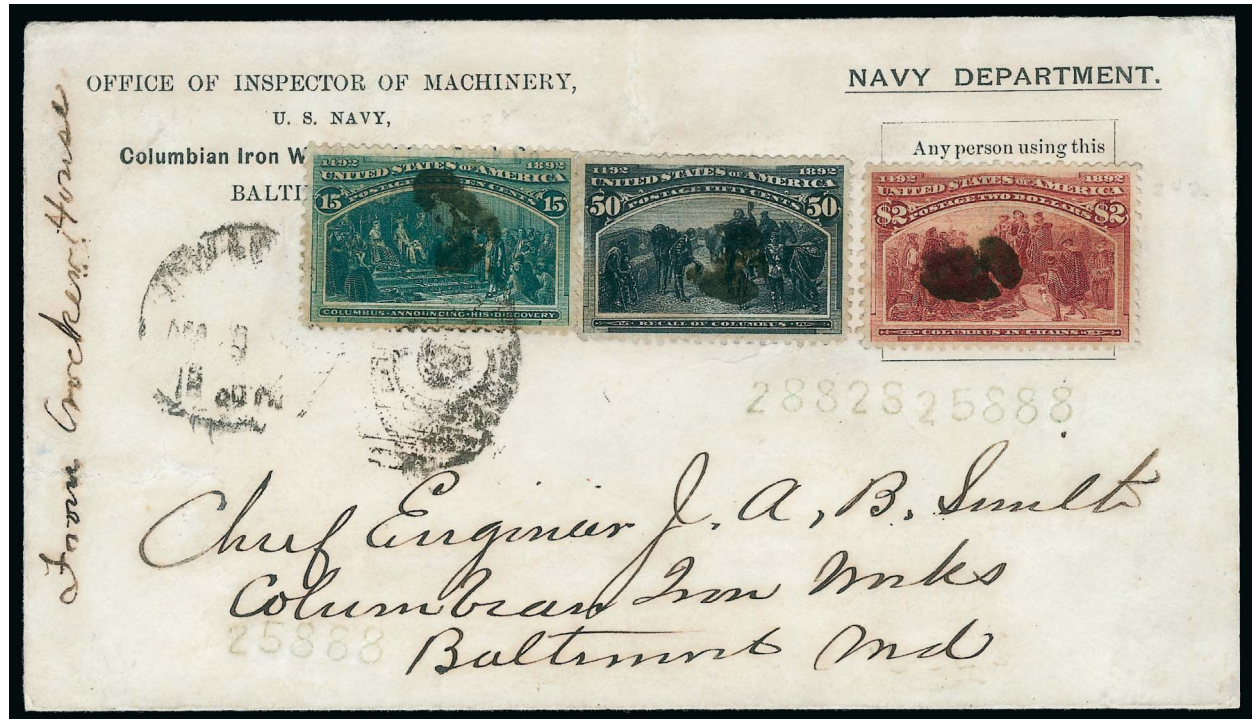 OFFICE OF INSPECTOR OF MACHINERY,
U. S. NAVY,
Columbian Iron
NAVY DEPARTMENT.
Any person using this
1492 1892
UNITED STATES OF AMERICA
POSTAGE FIFTEEN CENTS
15 15
COLUMBUS ANNOUNCING HIS DISCOVERY
1492 1892
UNITED STATES OF AMERICA
POSTAGE FIFTY CENTS
50 50
RECALL OF COLUMBUS
1492 1892
UNITED STATES OF AMERICA
POSTAGE TWO DOLLARS
$2 $2
COLUMBUS IN CHAINS
28828 25888
Chief Engineer J. A. B. Smith
Columbian Iron Works
Baltimore Md
25888
From Crocker House